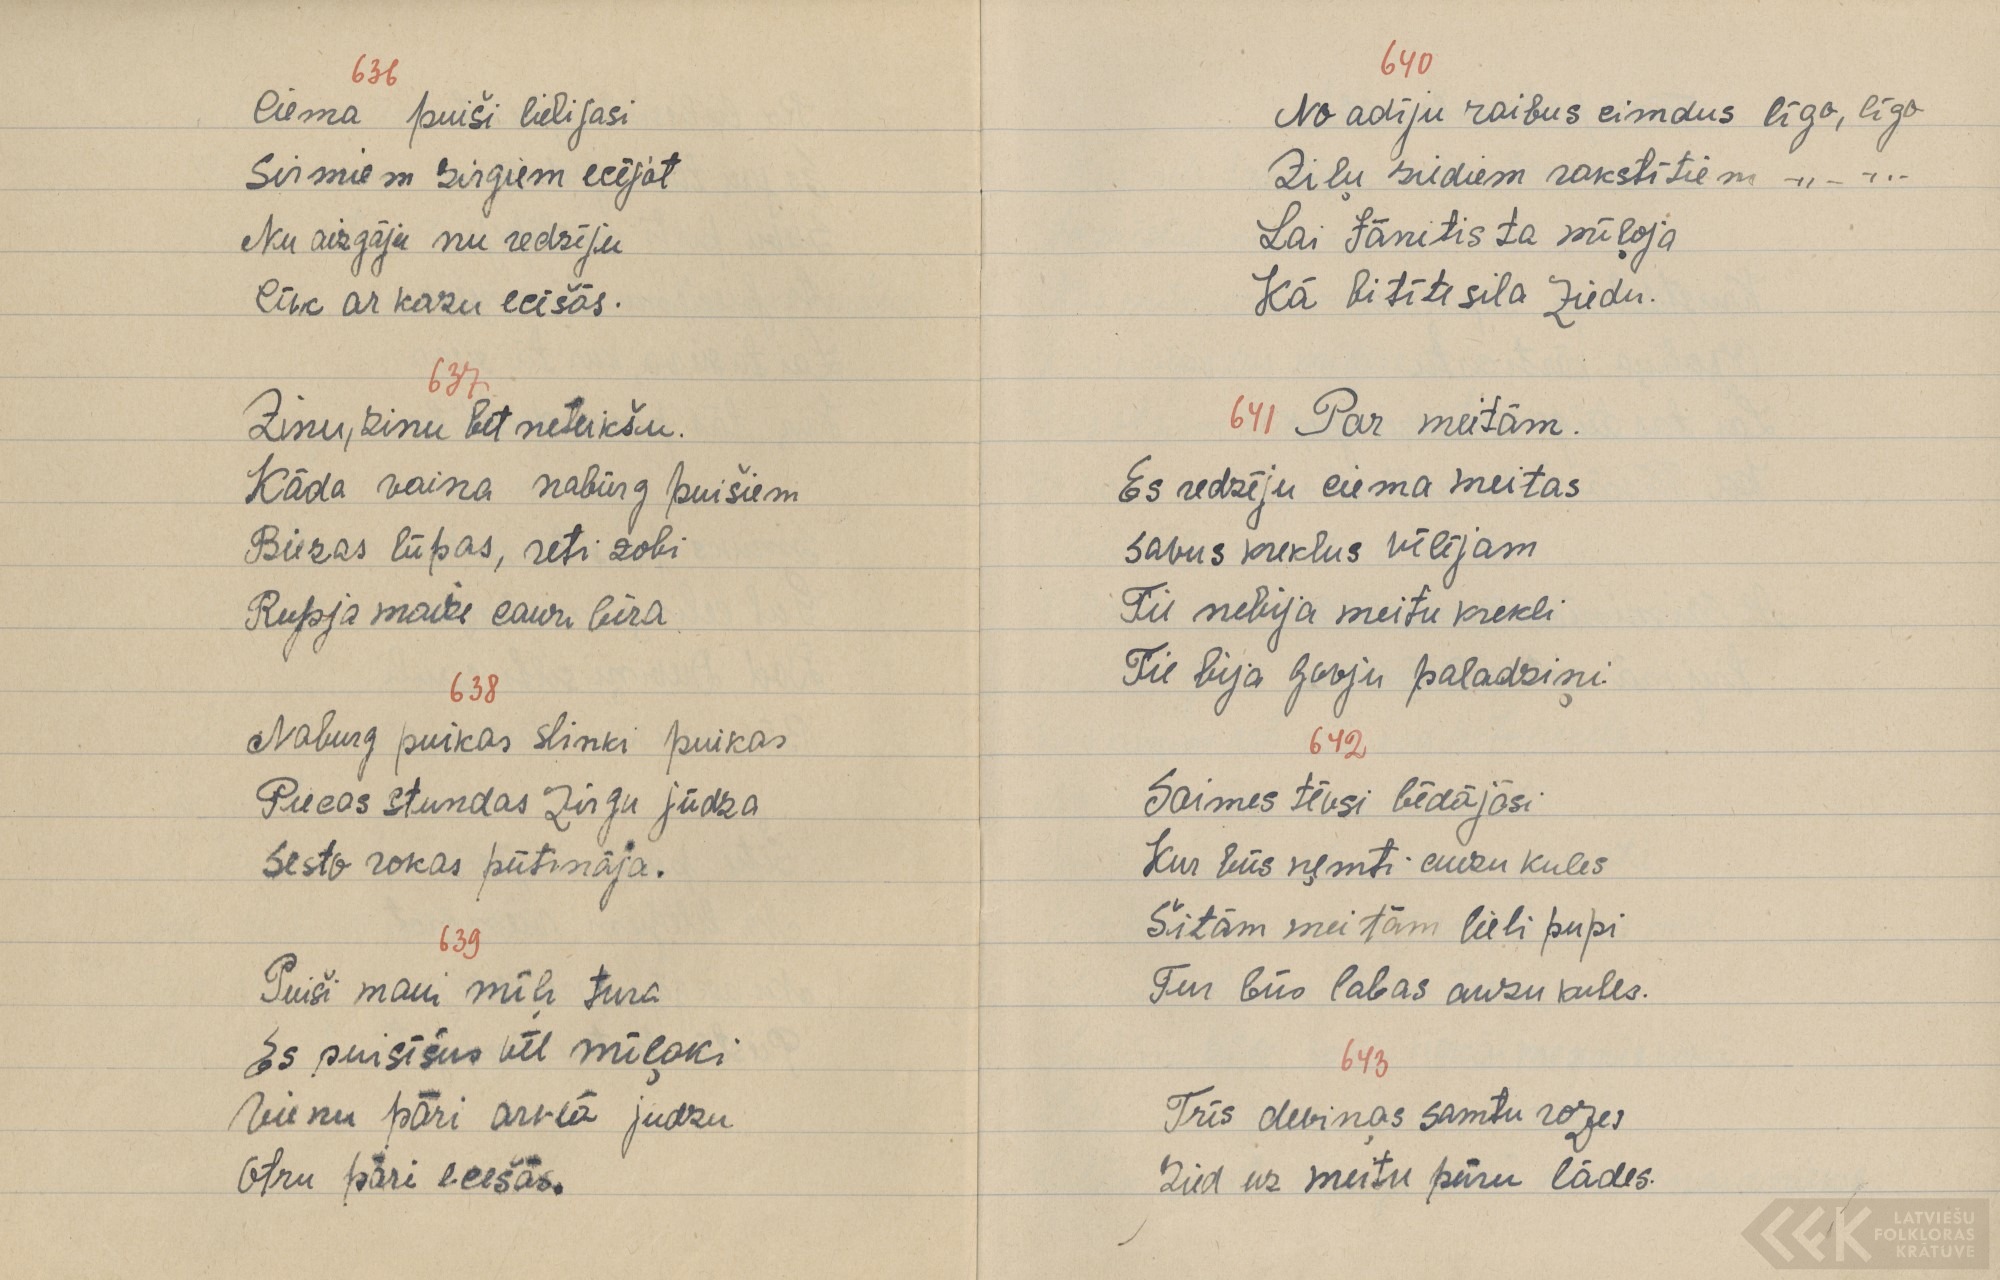 636
Ciema puiši lielijasi
Sirmiem zirgiem ecējot
Nu aizgāju nu redzēju
Cūk ar kazu ecēšās.
637
Zinu, zinu bet neteikšu.
Kāda vaina nabūrg puišiem
Biezas lūpas, reti zobi
Rupja maize cauri bira
638
Naburg puikas slinki puikas
Piecas stundas Zirgu jūdza
Sesto rokas pūtināja.
639
Puiši mani mīļi tura
Es puisīšus vēl mīļaki
Vienu pāri arklā judzu
Otru pāri ecešās.
640
No adīju raibus cimdus līgo, līgo
Ziļu ziediem rakstītiem -"- -"-
Lai Jānitis ta mīļoja
Kā bitīte sila Ziedu.
641 Par meitām.
Es redzēju ciema meitas
Savus kreklus vēlējam
Tie nebija meitu krekli
Tie bija govju paladziņi.
642
Saimes tēvsi bēdājāsi
Kur būs ņemti auzu kules
Šitām meitām lieli pupi
Tur būs labas auzu kules.
643
Trīs deviņas samtu rozes
Zied uz meitu pūru lādes.
LATVIEŠU
FOLKLORAS
KRĀTUVE